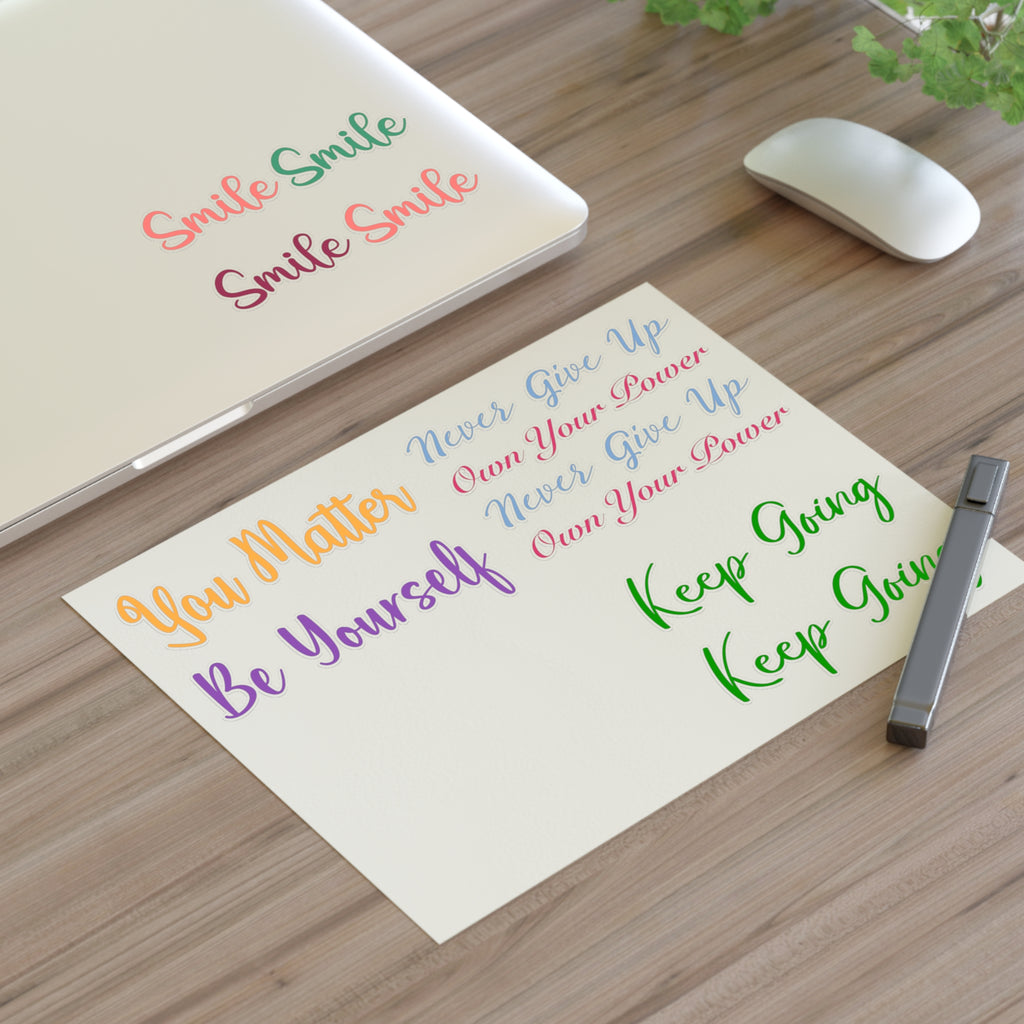 Smile Smile
Smile Smile
Never Give Up
Own Your Power
Never Give Up
Own Your Power
You Matter
Be Yourself
Keep Going
Keep Going